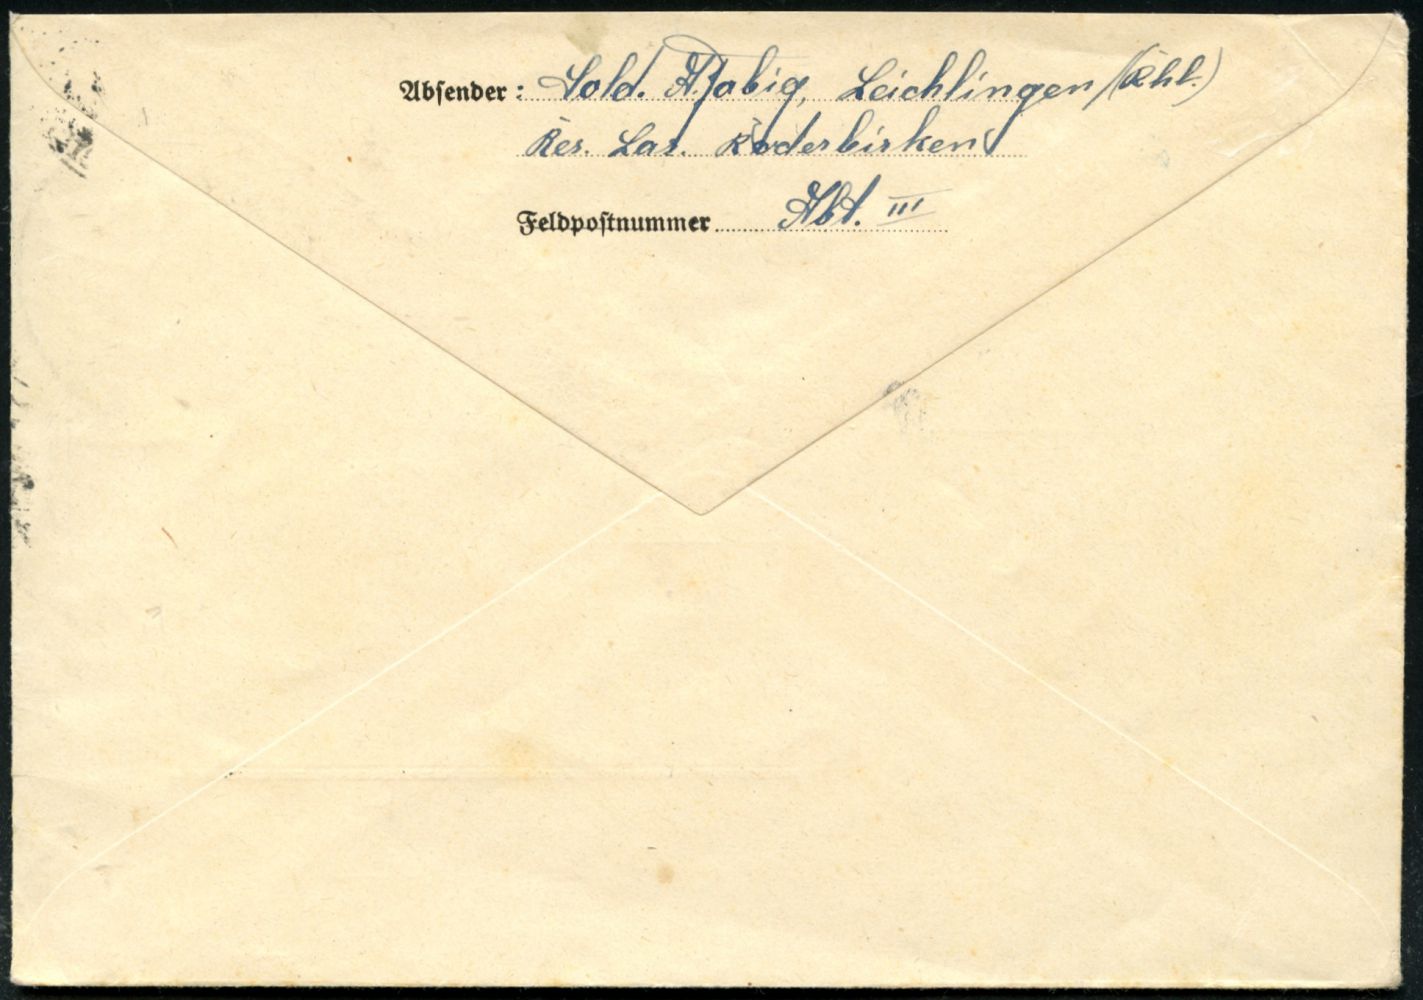 Absender: Sold. A. Fabig, Leichlingen (Rhl.)
Res. Laz. Roderbirken
Feldpostnummer Abt. III